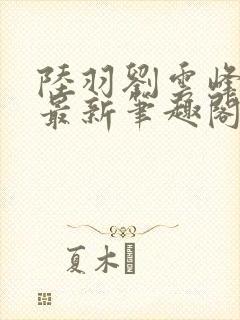 陸羽劉雲峰
最新筆趣閣
夏木